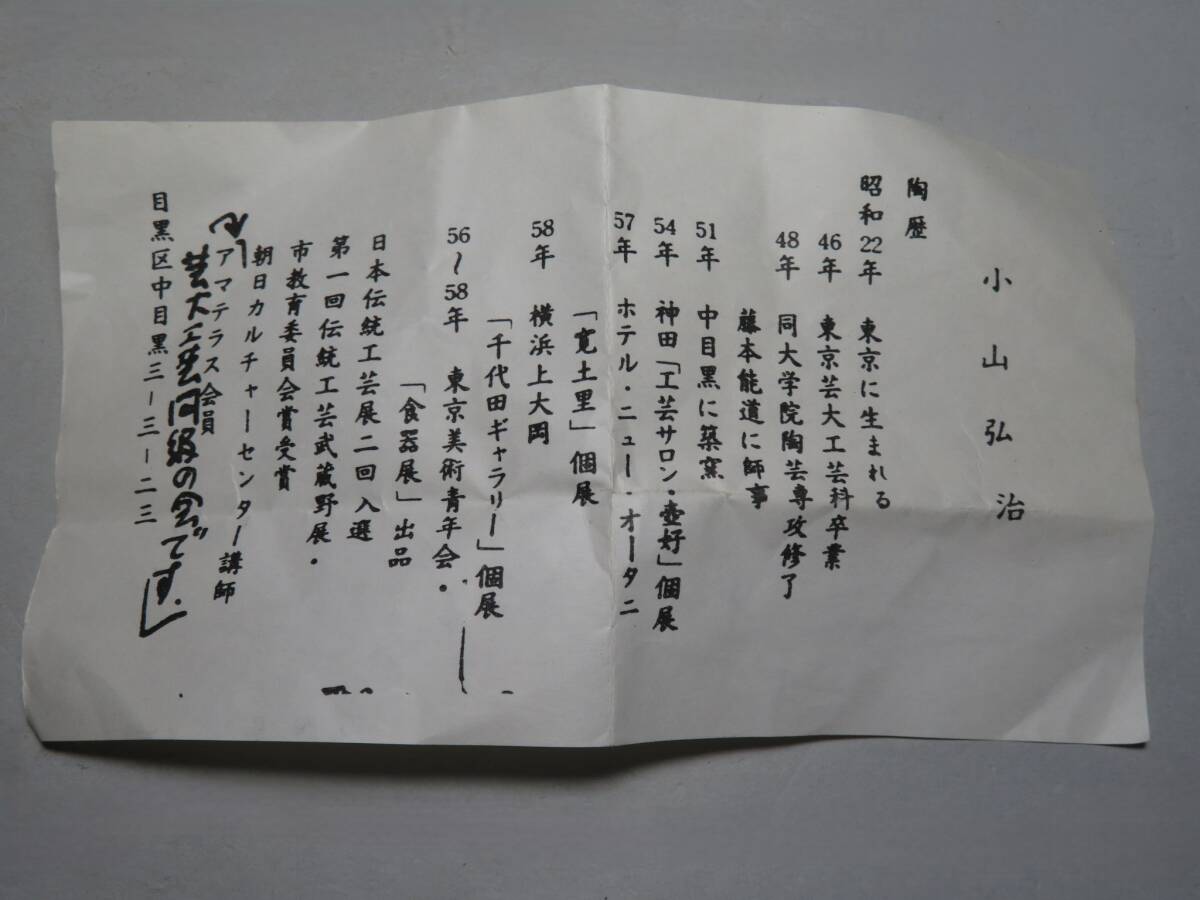 小山弘治
陶歴
昭和22年 東京に生まれる
46年 東京芸大工芸科卒業
48年 同大学院陶芸専攻修了
藤本能道に師事
51年 中目黒に築窯
54年 神田「工芸サロン・壺好」個展
57年 ホテル・ニュー・オータニ
「寛土里」個展
58年 横浜上大岡
「千代田ギャラリー」個展
56〜58年 東京美術青年会・
「食器展」出品
日本伝統工芸展二回入選
第一回伝統工芸武蔵野展・
市教育委員会賞受賞
朝日カルチャーセンター講師
アマテラス会員
芸大工芸同級の会です。
目黒区中目黒三－三－二三